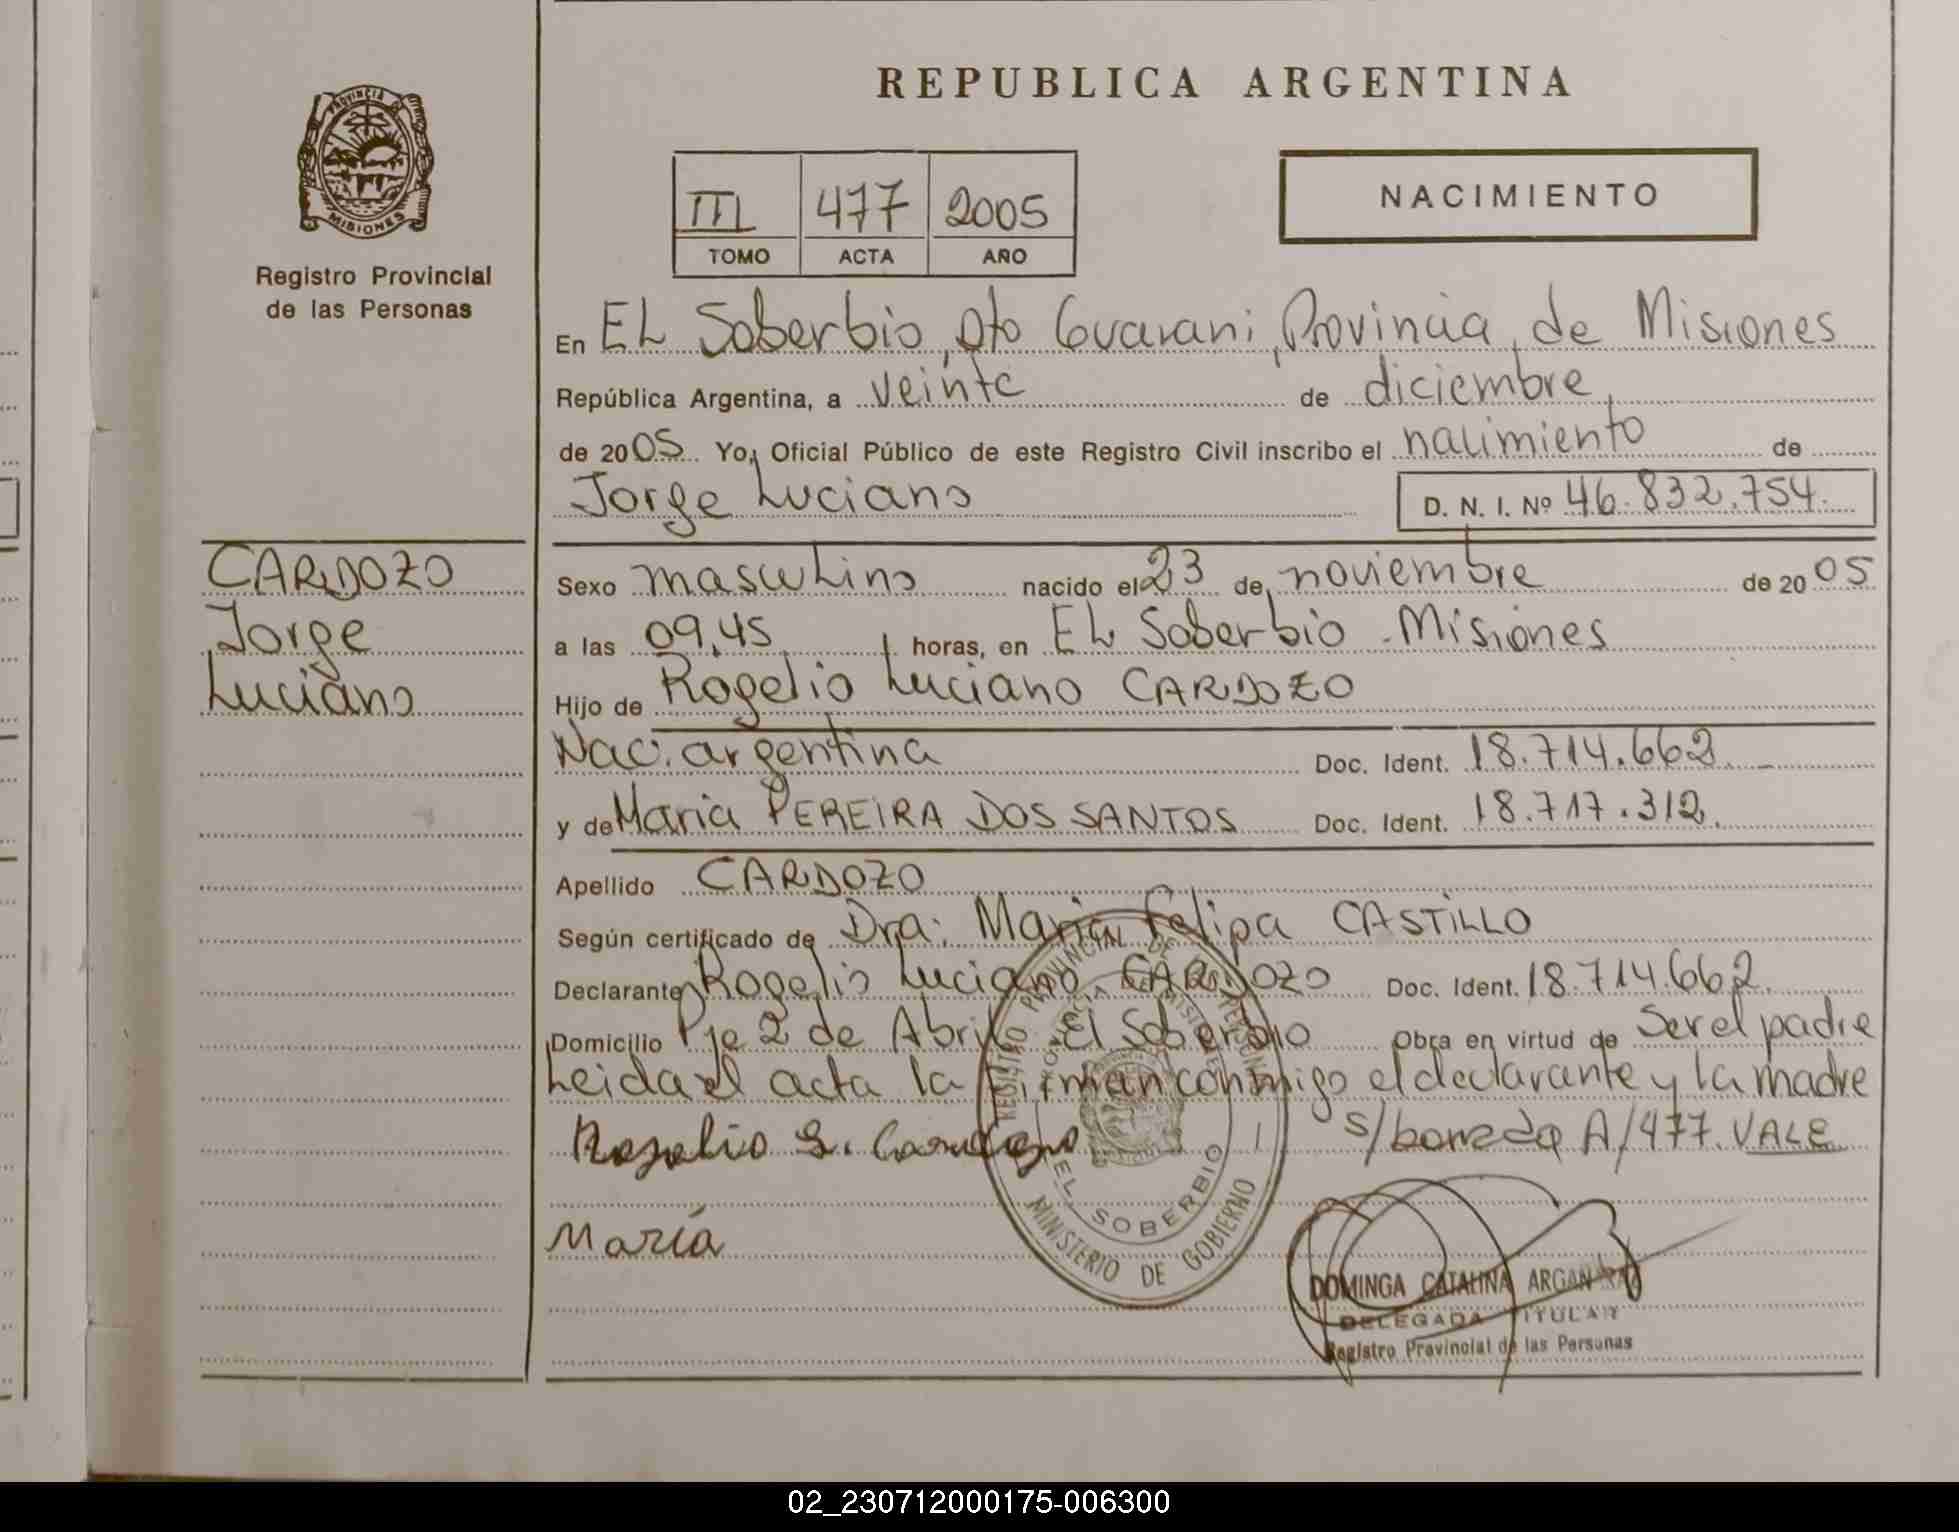 REPUBLICA ARGENTINA
PROVINCIA DE MISIONES
Registro Provincial
de las Personas
III 477 2005
TOMO ACTA AÑO
NACIMIENTO
En EL Soberbio, Dto Guarani, Provincia de Misiones
República Argentina, a veinte de diciembre
de 2005 Yo, Oficial Público de este Registro Civil inscribo el nacimiento de
Jorge Luciano D. N. I. Nº 46.832.754.
CARDOZO
Jorge
Luciano
Sexo masculino nacido el 23 de noviembre de 2005
a las 09,45 horas, en EL Soberbio - Misiones
Hijo de Rogelio Luciano CARDOZO
Nac. argentina Doc. Ident. 18.714.662
y de Maria PEREIRA DOS SANTOS Doc. Ident. 18.717.312.
Apellido CARDOZO
Según certificado de Dra: Maria Felipa CASTILLO
Declarante Rogelio Luciano CARDOZO Doc. Ident. 18.714.662
Domicilio Pje 2 de Abril - El Soberbio Obra en virtud de Ser el padre
Leida el acta la firman conmigo el declarante y la madre
Rogelio L. Cardozo s/borrado A/477. VALE
María
REGISTRO PROVINCIAL DE LAS PERSONAS
PROVINCIA DE MISIONES
EL SOBERBIO
MINISTERIO DE GOBIERNO
DOMINGA CATALINA ARGAÑARAZ
DELEGADA TITULAR
Registro Provincial de las Personas
02_230712000175-006300